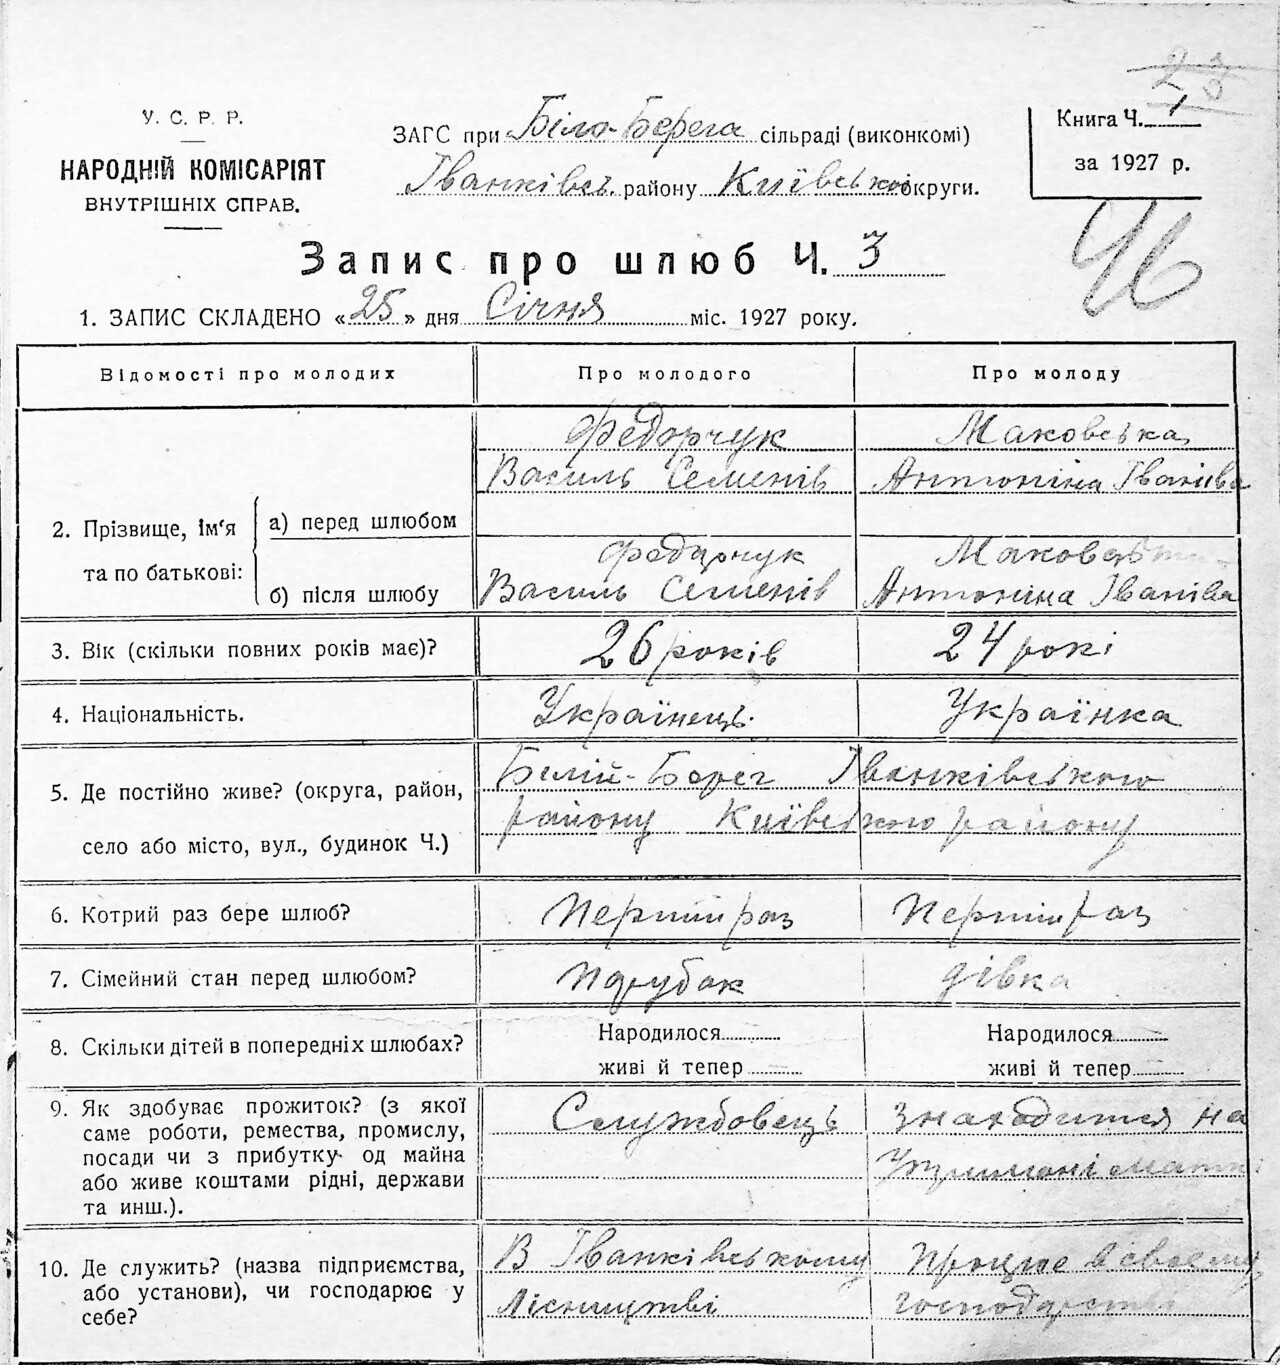 23
У. С. Р. Р.
НАРОДНІЙ КОМІСАРІЯТ
ВНУТРІШНІХ СПРАВ.
ЗАГС при Біло-Берега сільраді (виконкомі)
Іванківсь. району Київської округи.
Книга Ч. 1
за 1927 р.
46
Запис про шлюб Ч. 3
1. ЗАПИС СКЛАДЕНО «25» дня Січня міс. 1927 року.
Відомості про молодих Про молодого Про молоду
Федорчук Маковська
Василь Семенів Антоніна Іванівна
2. Прізвище, ім'я та по батькові:
а) перед шлюбом
Федорчук
б) після шлюбу Василь Семенів Антоніна Іванівна
3. Вік (скільки повних років має)? 26 років 24 рокі
4. Національність. Українець. Українка
5. Де постійно живе? (округа, район, Білій-Берег Іванківського
село або місто, вул., будинок Ч.) району Київського району
6. Котрий раз бере шлюб? Перший раз Перший раз
7. Сімейний стан перед шлюбом? Парубок дівка
8. Скільки дітей в попередніх шлюбах? Народилося Народилося
живі й тепер живі й тепер
9. Як здобуває прожиток? (з якої Службовець Знаходится на
саме роботи, ремества, промислу,
посади чи з прибутку од майна
або живе коштами рідні, держави
та инш.).
10. Де служить? (назва підприємства, В Іванківському Працює в своєму
або установи), чи господарює у Лісництві господарстві
себе?